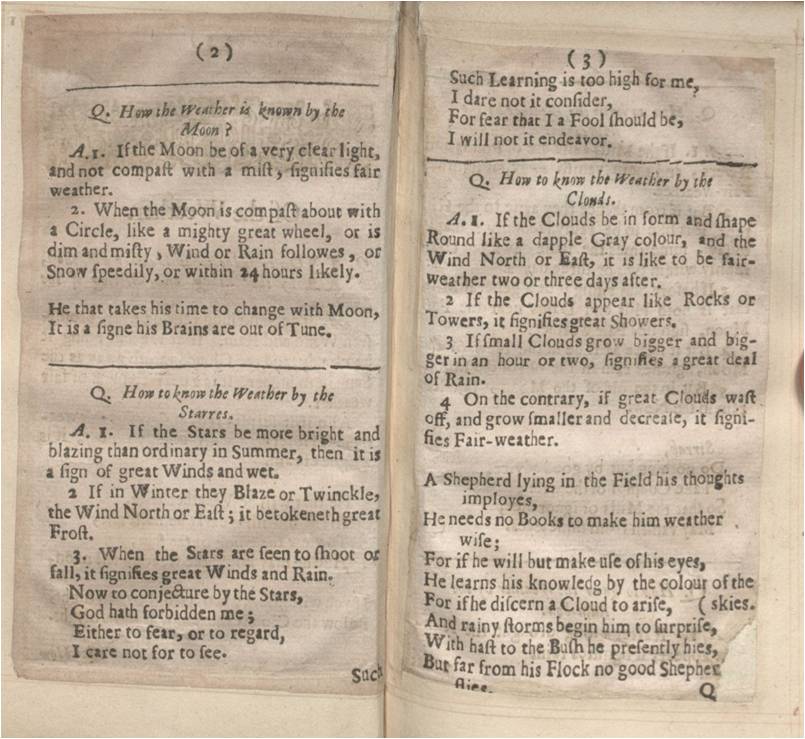 (2)
Q. How the Weather is known by the
Moon?
A. 1. If the Moon be of a very clear light,
and not compaſt with a miſt, ſignifies fair
weather.
2. When the Moon is compaſt about with
a Circle, like a mighty great wheel, or is
dim and miſty, Wind or Rain followes, or
Snow ſpeedily, or within 24 hours likely.
He that takes his time to change with Moon,
It is a ſigne his Brains are out of Tune.
Q. How to know the Weather by the
Starres.
A. 1. If the Stars be more bright and
blazing than ordinary in Summer, then it is
a ſign of great Winds and wet.
2 If in Winter they Blaze or Twinckle,
the Wind North or Eaſt; it betokeneth great
Froſt.
3. When the Stars are ſeen to ſhoot or
fall, it ſignifies great Winds and Rain.
Now to conjecture by the Stars,
God hath forbidden me;
Either to fear, or to regard,
I care not for to ſee.
Such
(3)
Such Learning is too high for me,
I dare not it conſider,
For fear that I a Fool ſhould be,
I will not it endeavor.
Q. How to know the Weather by the
Clouds.
A. 1. If the Clouds be in form and ſhape
Round like a dapple Gray colour, and the
Wind North or Eaſt, it is like to be fair-
weather two or three days after.
2 If the Clouds appear like Rocks or
Towers, it ſignifies great Showers.
3 If ſmall Clouds grow bigger and big-
ger in an hour or two, ſignifies a great deal
of Rain.
4 On the contrary, if great Clouds waſt
off, and grow ſmaller and decreaſe, it ſigni-
fies Fair-weather.
A Shepherd lying in the Field his thoughts
imployes,
He needs no Books to make him weather
wiſe;
For if he will but make uſe of his eyes,
He learns his knowledg by the colour of the
For if he diſcern a Cloud to ariſe, ( skies.
And rainy ſtorms begin him to ſurpriſe,
With haſt to the Buſh he preſently hies,
But far from his Flock no good Shepher
flies.
Q